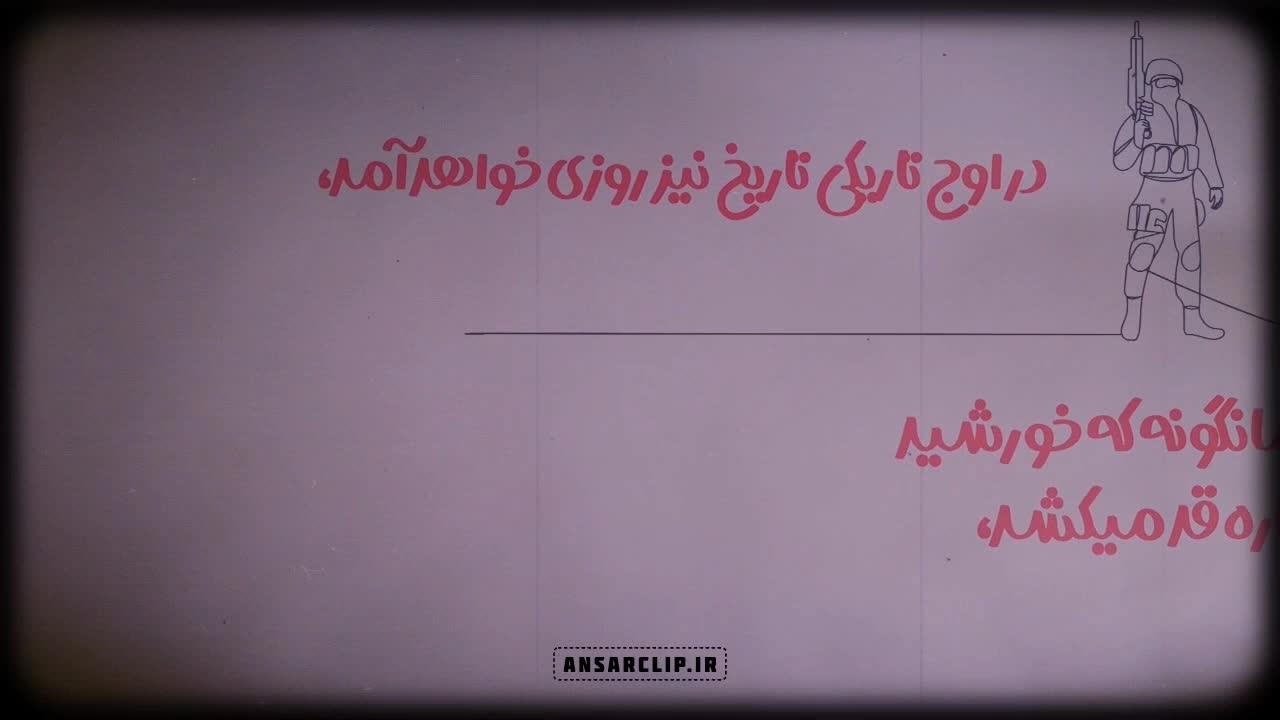 در اوج تاریکی تاریخ نیز روزی خواهد آمد،
که خورشید
قد میکشد،
ANSARCLIP.IR